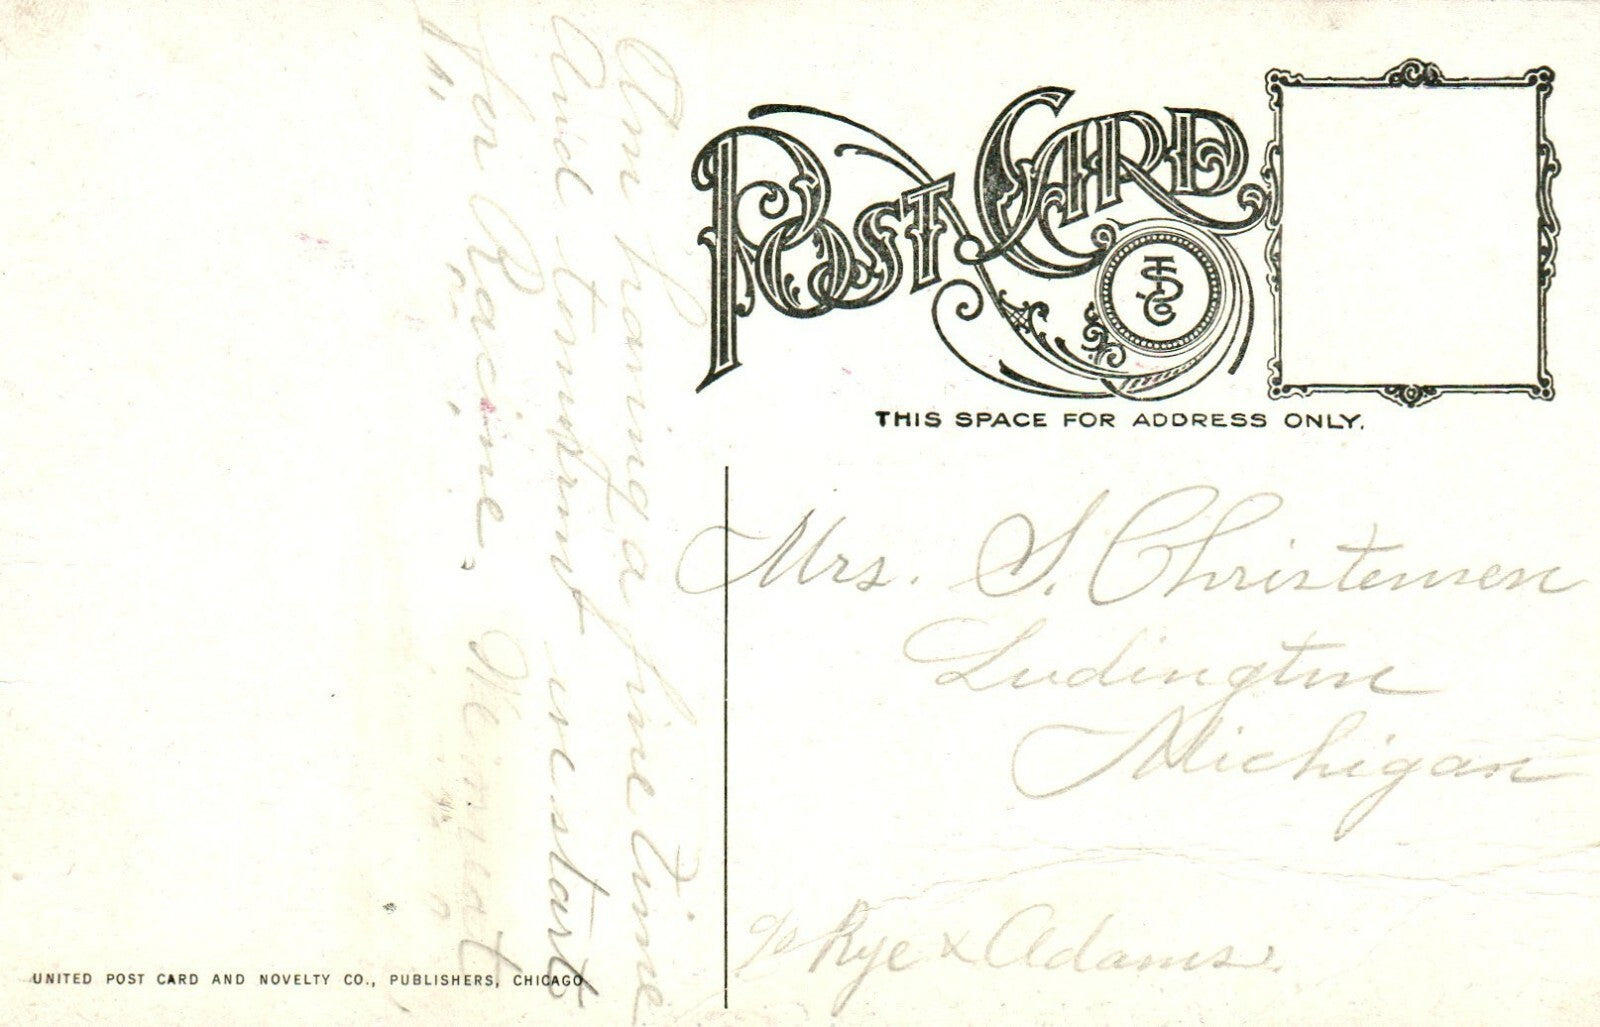 POST CARD
THIS SPACE FOR ADDRESS ONLY.
Am having a fine time
And tonight we start
for Racine.
Mrs. S. Christensen
Ludington
Michigan
c/o Rye & Adams.
UNITED POST CARD AND NOVELTY CO., PUBLISHERS, CHICAGO